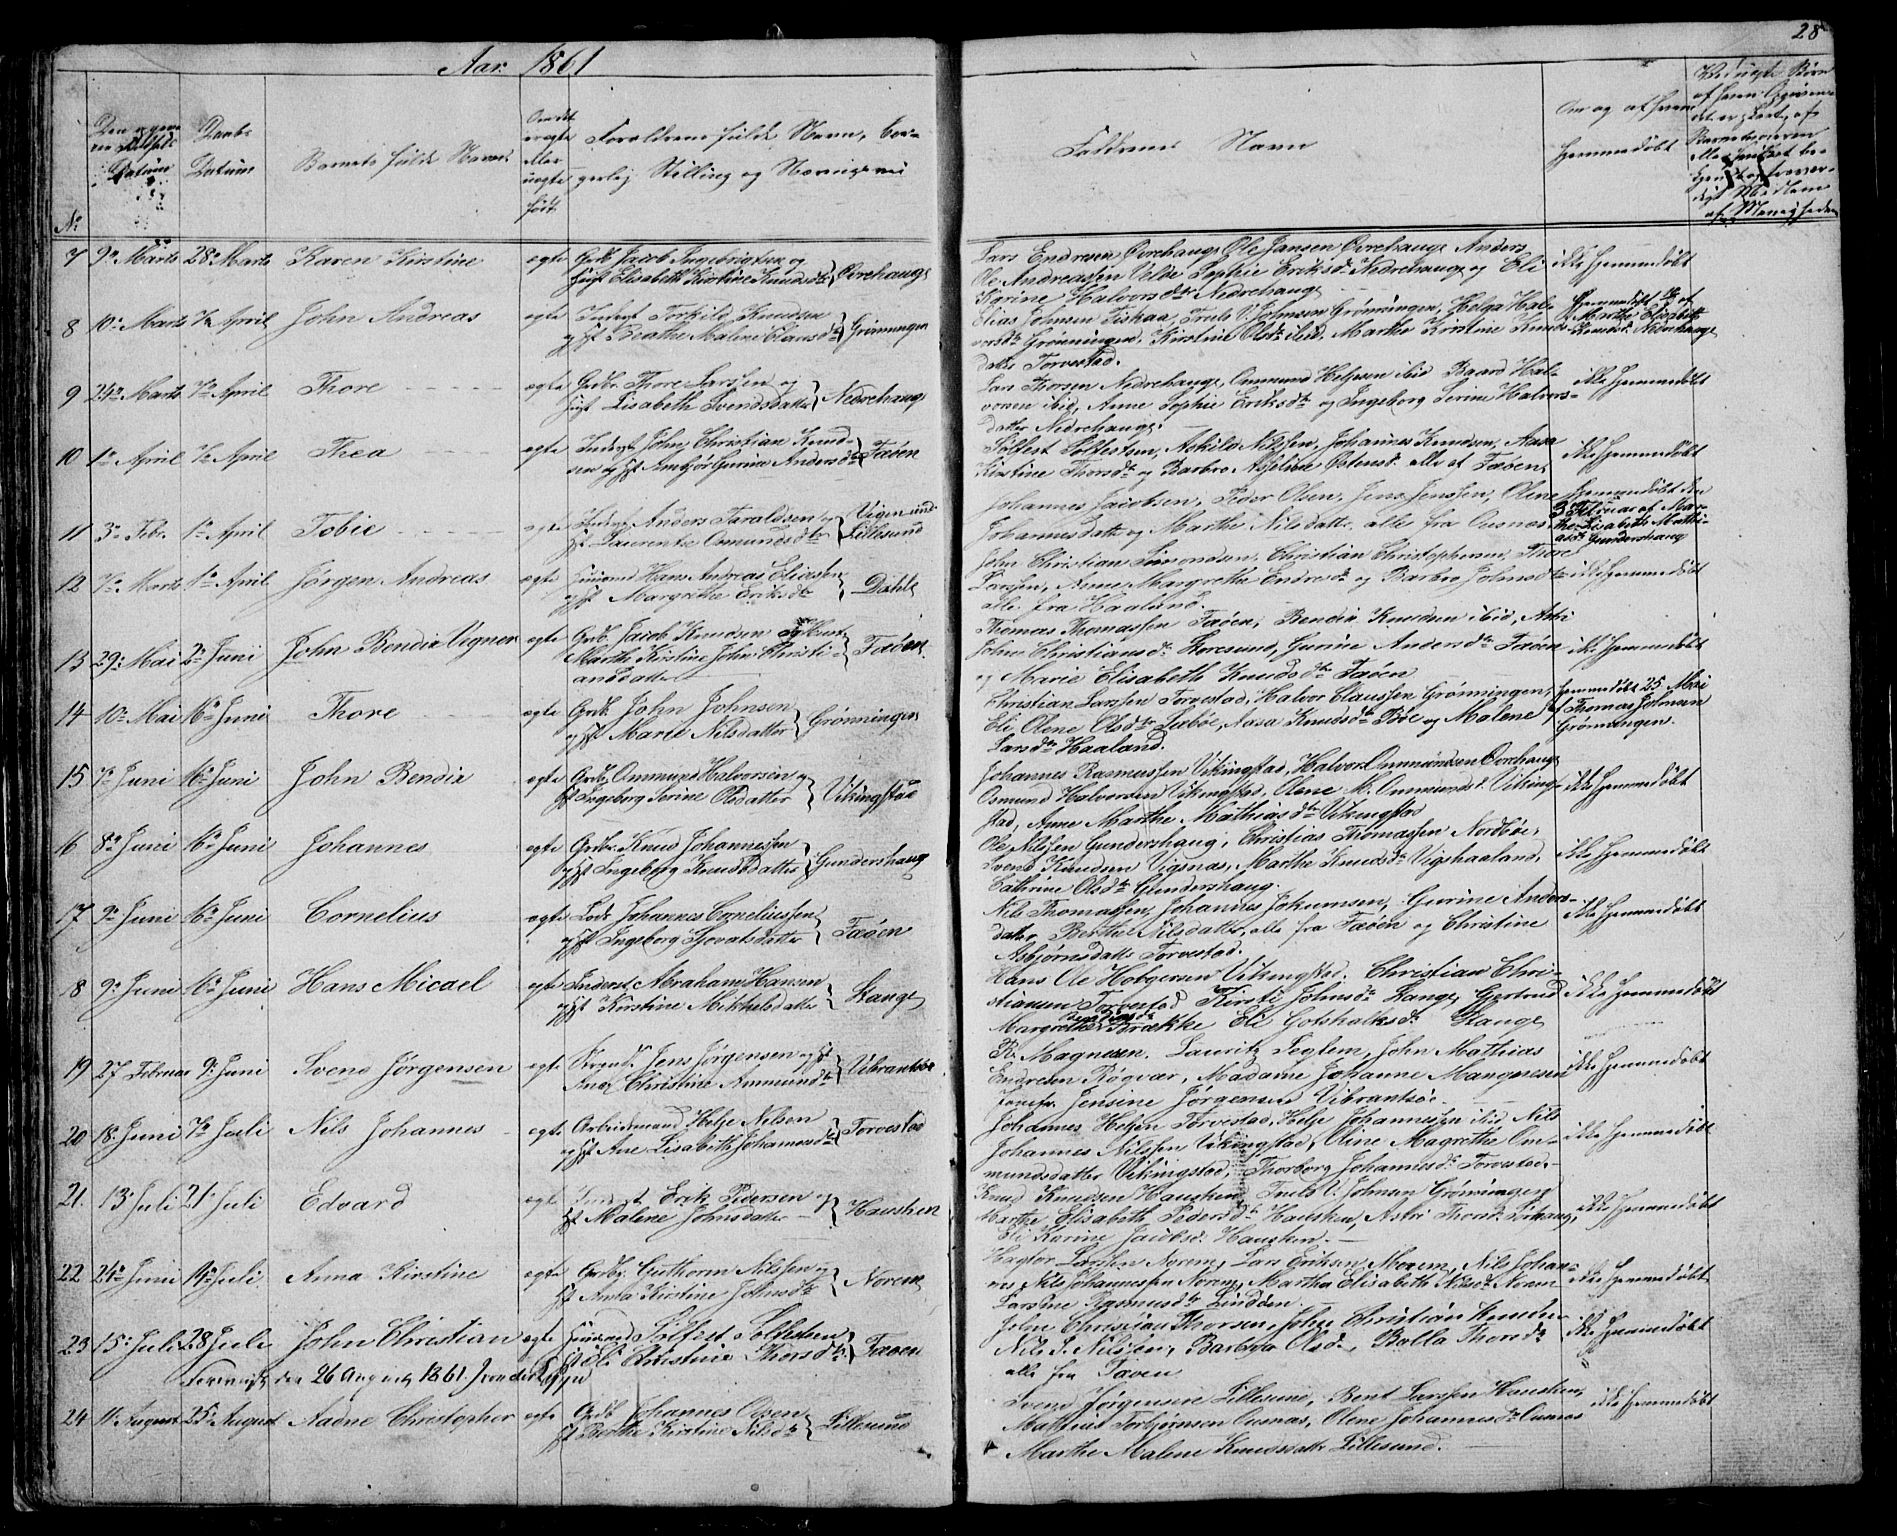 28
Aar. 1861
No
Daabs
Datum
Barnets fulde Navn
Forældrenes fulde Navn, bor-
gerlig Stilling og Næringsvei
Faddernes Navn
hjemmedøbt
7 9de Marts 28de Marts Karen Kirstine ægte Grdb. Jacob Ingebrigtsen og
Hust Elisabeth Kirstine Knudsdtr Øvrehauge
Lars Endresen Øvrehauge Ole Jansen Øvrehauge Anders
Ole Andreassen Velde Sophie Eriksdtr Nedrehauge og Eli
Karine Halvorsdtr Nedrehauge
ikke hjemmedøbt
8 10de Marts 7de April John Andreas ægte Inderst Torkild Knudsen
og Hst Beathe Malene Clausdtr Grønningen
Elias Johnsen Fiskaa, Truls V. Johnsen Grønningen, Helga Hal-
vorsdtr Grønningen, Kirstine Olsdtr ibid, Marthe Kirstine Knuds-
datter Torvestad.
Marthe Elisabeth
Knudsd. Nedrehauge
9 24de Marts 7de April Thore ægte Grdbr. Thore Larssen og
Hust Lisabeth Svendsdatter Nedrehauge
Lars Thorsen Nedrehauge, Ommund Heljesen ibid Baard Hal-
vorsen ibid, Anne Sophie Eriksdtr og Ingeborg Serine Halvors-
datter Nedrehauge.
ikke hjemmedøbt
10 1de April 7de April Thea ægte Inderst John Christian Knud-
sen og Hst Anbjør Gurine Andersdtr Faøen
Solfest Solfestsen, Askild Nilssen, Johannes Knudsen, Aasa
Kirstine Thorsdtr og Barbro Asseline Ostensd. alle af Faøen
ikke hjemmedøbt
11 3de Febr. 1de April Tobie ægte Inderst Anders Taraldsen og
Hst Laurentse Osmundsdtr Lillesund
Johannes Jacobsen, Peder Olsen, Jens Jenssen, Olene
Johannesdatter og Marthe Nilsdatter, alle fra Ousnæs
hjemmedøbt den
3 Februar af Mar-
the Lisabeth Mathi-
asd. Gundershaug
12 7de Marts 1de April Jørgen Andreas ægte Huusmd Hans Andreas Eliassen
og Hst Margrethe Eriksdtr Dahle
John Christian Simondsen, Christian Christophersen, Thore
Larssen, Anne Margrethe Endresdtr og Barbro Johnsdtr
alle fra Haaland.
ikke hjemmedøbt
13 29de Mai 2de Juni John Bendix Vigner ægte Grdb. Jacob Knudsen og Hust
Marthe Kirstine John Christi-
ansdatter Faøen
Thomas Thomassen Faøen, Bendix Knudsen ibid, Astri
John Christiansdtr Storesund, Gurine Andersdtr Faøen
og Marie Elisabeth Knudsdtr Faøen
ikke hjemmedøbt
14 10de Mai 16de Juni Thore ægte Grdb. John Johnsen
og Hst Marie Nilsdatter Grønningen
Christian Larssen Torvestad, Halvor Claussen Grønningen,
Eli Olene Olsdtr Sæbøe, Aasa Knudsdtr Bøe og Malene
Larsdtr Haaland.
hjemmedøbt 25 Mai
af Thomas Johnsen
Grønningen.
15 7de Juni 16de Juni John Bendix ægte Grdb. Ommund Halvorsen og
Hst Ingeborg Serine Olsdatter Vikingstad
Johannes Rasmussen Vikingstad, Halvor Ommundsen Øvrehauge
Osmund Halvorsen Vikingstad, Olene M. Ommundsd. Viking-
stad, Anne Marthe Mathiasdtr Vikingstad
ikke hjemmedøbt
16 8de Juni 16de Juni Johannes ægte Grdbr. Knud Johannessen
og Hst Ingeborg Knudsdatter Gundershaug
Ole Nilssen Gundershaug, Christian Thomassen Nordbøe,
Svend Knudsen Vigsnæs, Marthe Knudsdtr Vigshaaland,
Cathrine Olsdtr Gundershaug.
ikke hjemmedøbt
17 9de Juni 16de Juni Cornelius ægte Lods Johannes Corneliussen
og Hst Ingeborg Sjovatsdatter Faøen
Nils Thomassen, Johannes Johansen, Gurine Anders-
datter, Berthe Nilsdatter, alle fra Faøen og Christine
Asbjørnsdatter Torvestad.
ikke hjemmedøbt
18 9de Juni 16de Juni Hans Micael ægte Inderst Abraham Hansen
og Hst Kirstine Mikkelsdatter Stange
Hans Ole Holgersen Vikingstad. Christian Chri-
stiansen Torvestad Kirsti Johnsdtr Stange, Gertrud
Margrethe Brække Eli Gotshalksd. Stange
ikke hjemmedøbt
19 27 Februar 9de Juni Svend Jørgensen ægte Jens Jørgensen og Hst
Ane Christine Ammundsdtr Vibrantsøe
R. Magnesen. Lauritz Seglem, John Mathias
Endresen Røgvær, Madame Johanne Mangnesen
Jomfr. Jensine Jørgensen Vibrantsøe.
ikke hjemmedøbt
20 18de Juni 7de Juli Nils Johannes ægte Arbeidsmand Helje Nilsen
og Hst Ane Lisabeth Johannesdtr Torvestad
Johannes Heljen Torvestad, Helje Johannessen ibid Nils
Johannes Nilssen Vikingstad, Oline Magrethe Om-
mundsdatter Vikingstad, Thorborg Johannesdtr Torvestad.
ikke hjemmedøbt
21. 13de Juli 21de Juli Edvard ægte Inderst Erik Pedersen og
Hst Malene Johnsdatter Hausken
Knud Knudsen Hausken Truls V. Johnsen Grønningen
Marthe Elisabeth Pedersdtr Hausken, Astri Thorsdtr
Eli Karine Jacobsd. Hausken.
ikke hjemmedøbt
22 24de Juni 14de Juli Anna Kirstine ægte Grdbr. Guthorm Nilssen og
Hst Anna Kirstine Johnsdtr Norem
Lars Eriksen Norem, Nils Johan-
nes Nils Johannessen Norem, Martha Elisabeth Nilsdtr Norem
Larsine Rasmusdtr Lindøen.
ikke hjemmedøbt
23 15de Juli 28 Juli John Christian ægte Huusmd Solfest Solfestsen
Hst Eli Christine Thorsdtr Faøen
John Christian Thorsen, John Christian Knudsen
Nils S. Nilssen, Barbro Olsd., Balla Thorsdtr
alle fra Faøen
ikke hjemmedøbt
den 26 August 1861.
24 11de August 25de August Aadne Christopher ægte Grdb. Johannes Olsen
Hst Berthe Kirstine Nilsdtr Lillesund
Svend Jørgensen Lillesund, Bent Larssen Hausken,
Mathias Torbjørnsen Ousnæs, Olene Johannesdtr Ousnæs
Marthe Malene Knudsdatter Lillesund.
ikke hjemmedøbt